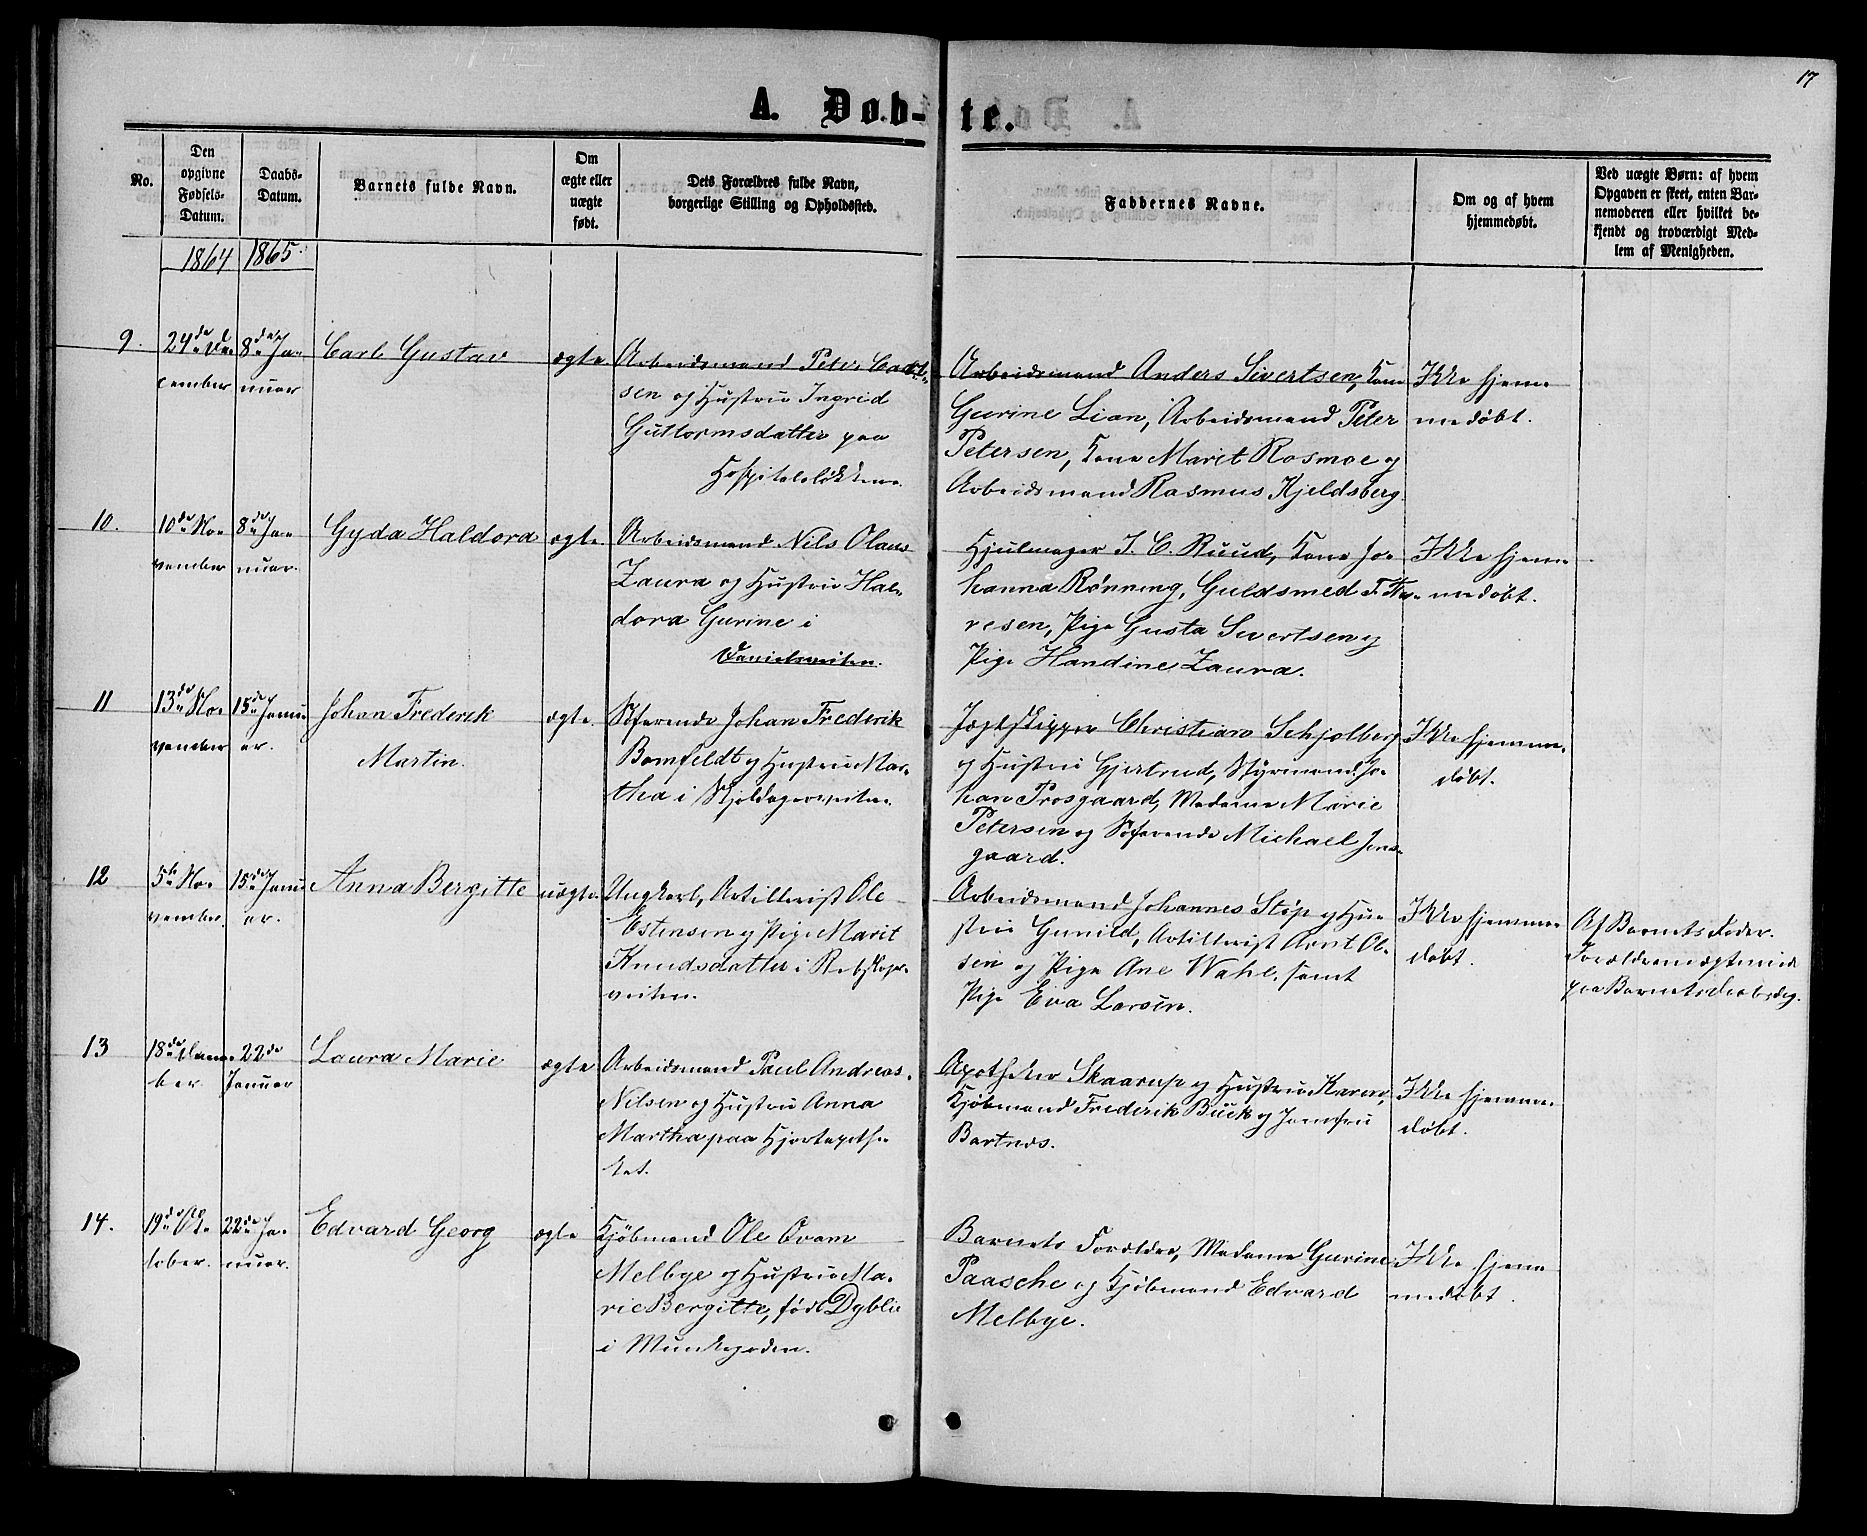 17
A. Døb-te.
No.
Den opgivne Fødsels-Datum.
Daabs-Datum.
Barnets fulde Navn.
Om ægte eller uægte født.
Dets Forældres fulde Navn, borgerlige Stilling og Opholdssted.
Faddernes Navne.
Om og af hvem hjemmedøbt.
Ved uægte Børn: af hvem Opgaven er skeet, enten Barnemoderen eller hvilket bekjendt og troværdigt Medlem af Menigheden.
1864 1865
9.
24de De-
cember
8de Ja-
nuar
Carl Gustav
ægte
Arbeidsmand Peter Carl-
sen og Hustru Ingrid
Guttormsdatter paa
Hospitalsløkken.
Arbeidsmand Anders Sivertsen, Kone
Gurine Lian, Arbeidsmand Peter
Petersen, Kone Marit Rosmoe og
Arbeidsmand Rasmus Kjeldsberg.
Ikke hjem-
medøbt.
10.
10de No-
vember
8de Ja-
nuar.
Gyda Haldora
ægte
Arbeidsmand Nils Olaus
Zaura og Hustru Hal-
dora Gurine i
Danielsveiten.
Hjulmager J. C. Ruud, Kone Jo-
hanna Rønning, Guldsmed F. Tha-
resen, Pige Gusta Sivertsen og
Pige Handine Zaura.
Ikke hjem-
medøbt.
11
13de No-
vember
15de Janu-
ar.
Johan Frederik
Martin.
ægte.
Søfarende Johan Frederik
Bomfeldt og Hustru Mar-
tha i Skjoldagerveiten.
Jagtskipper Christian Schjølberg
og Hustru Gjertrud, Styrmand Jo-
han Prosgaard, Madame Marie
Petersen og Søfarende Michael Jens-
gaard.
Ikke hjemme-
døbt.
12
5te No-
vember.
15de Janu-
ar.
Anna Bergitte
uægte.
Ungkarl, Artillerist Ole
Estensen og Pige Marit
Knudsdatter i Rebslager-
veiten.
Arbeidsmand Johannes Støp og Hu-
stru Gunild, Artillerist Arnt Ol-
sen og Pige Ane Wahl, samt
Pige Eva Larsen.
Ikke hjemme-
døbt.
Af Barnets Fader.
Forældrene ægteviede
paa Barnets Daabsdag.
13
18de Decem-
ber
22de
Januar
Laura Marie
ægte
Arbeidsmand Paul Andreas
Nilsen og Hustru Anna
Martha paa Hjorteapothe-
ket.
Apotheker Skaarup og Hustru Karen,
Kjøbmand Frederik Buck og Jomfru
Bartnes.
Ikke hjemme-
døbt.
14.
19de Ok-
tober.
22de Ja-
nuar.
Edvard Georg
ægte
Kjøbmand Ole Qvam
Melbye og Hustru Ma-
rie Bergitte, født Dyblie
i Munkegaden.
Barnets Forældre, Madame Gurine
Paasche og Kjøbmand Edvard
Melbye.
Ikke hjem-
medøbt.